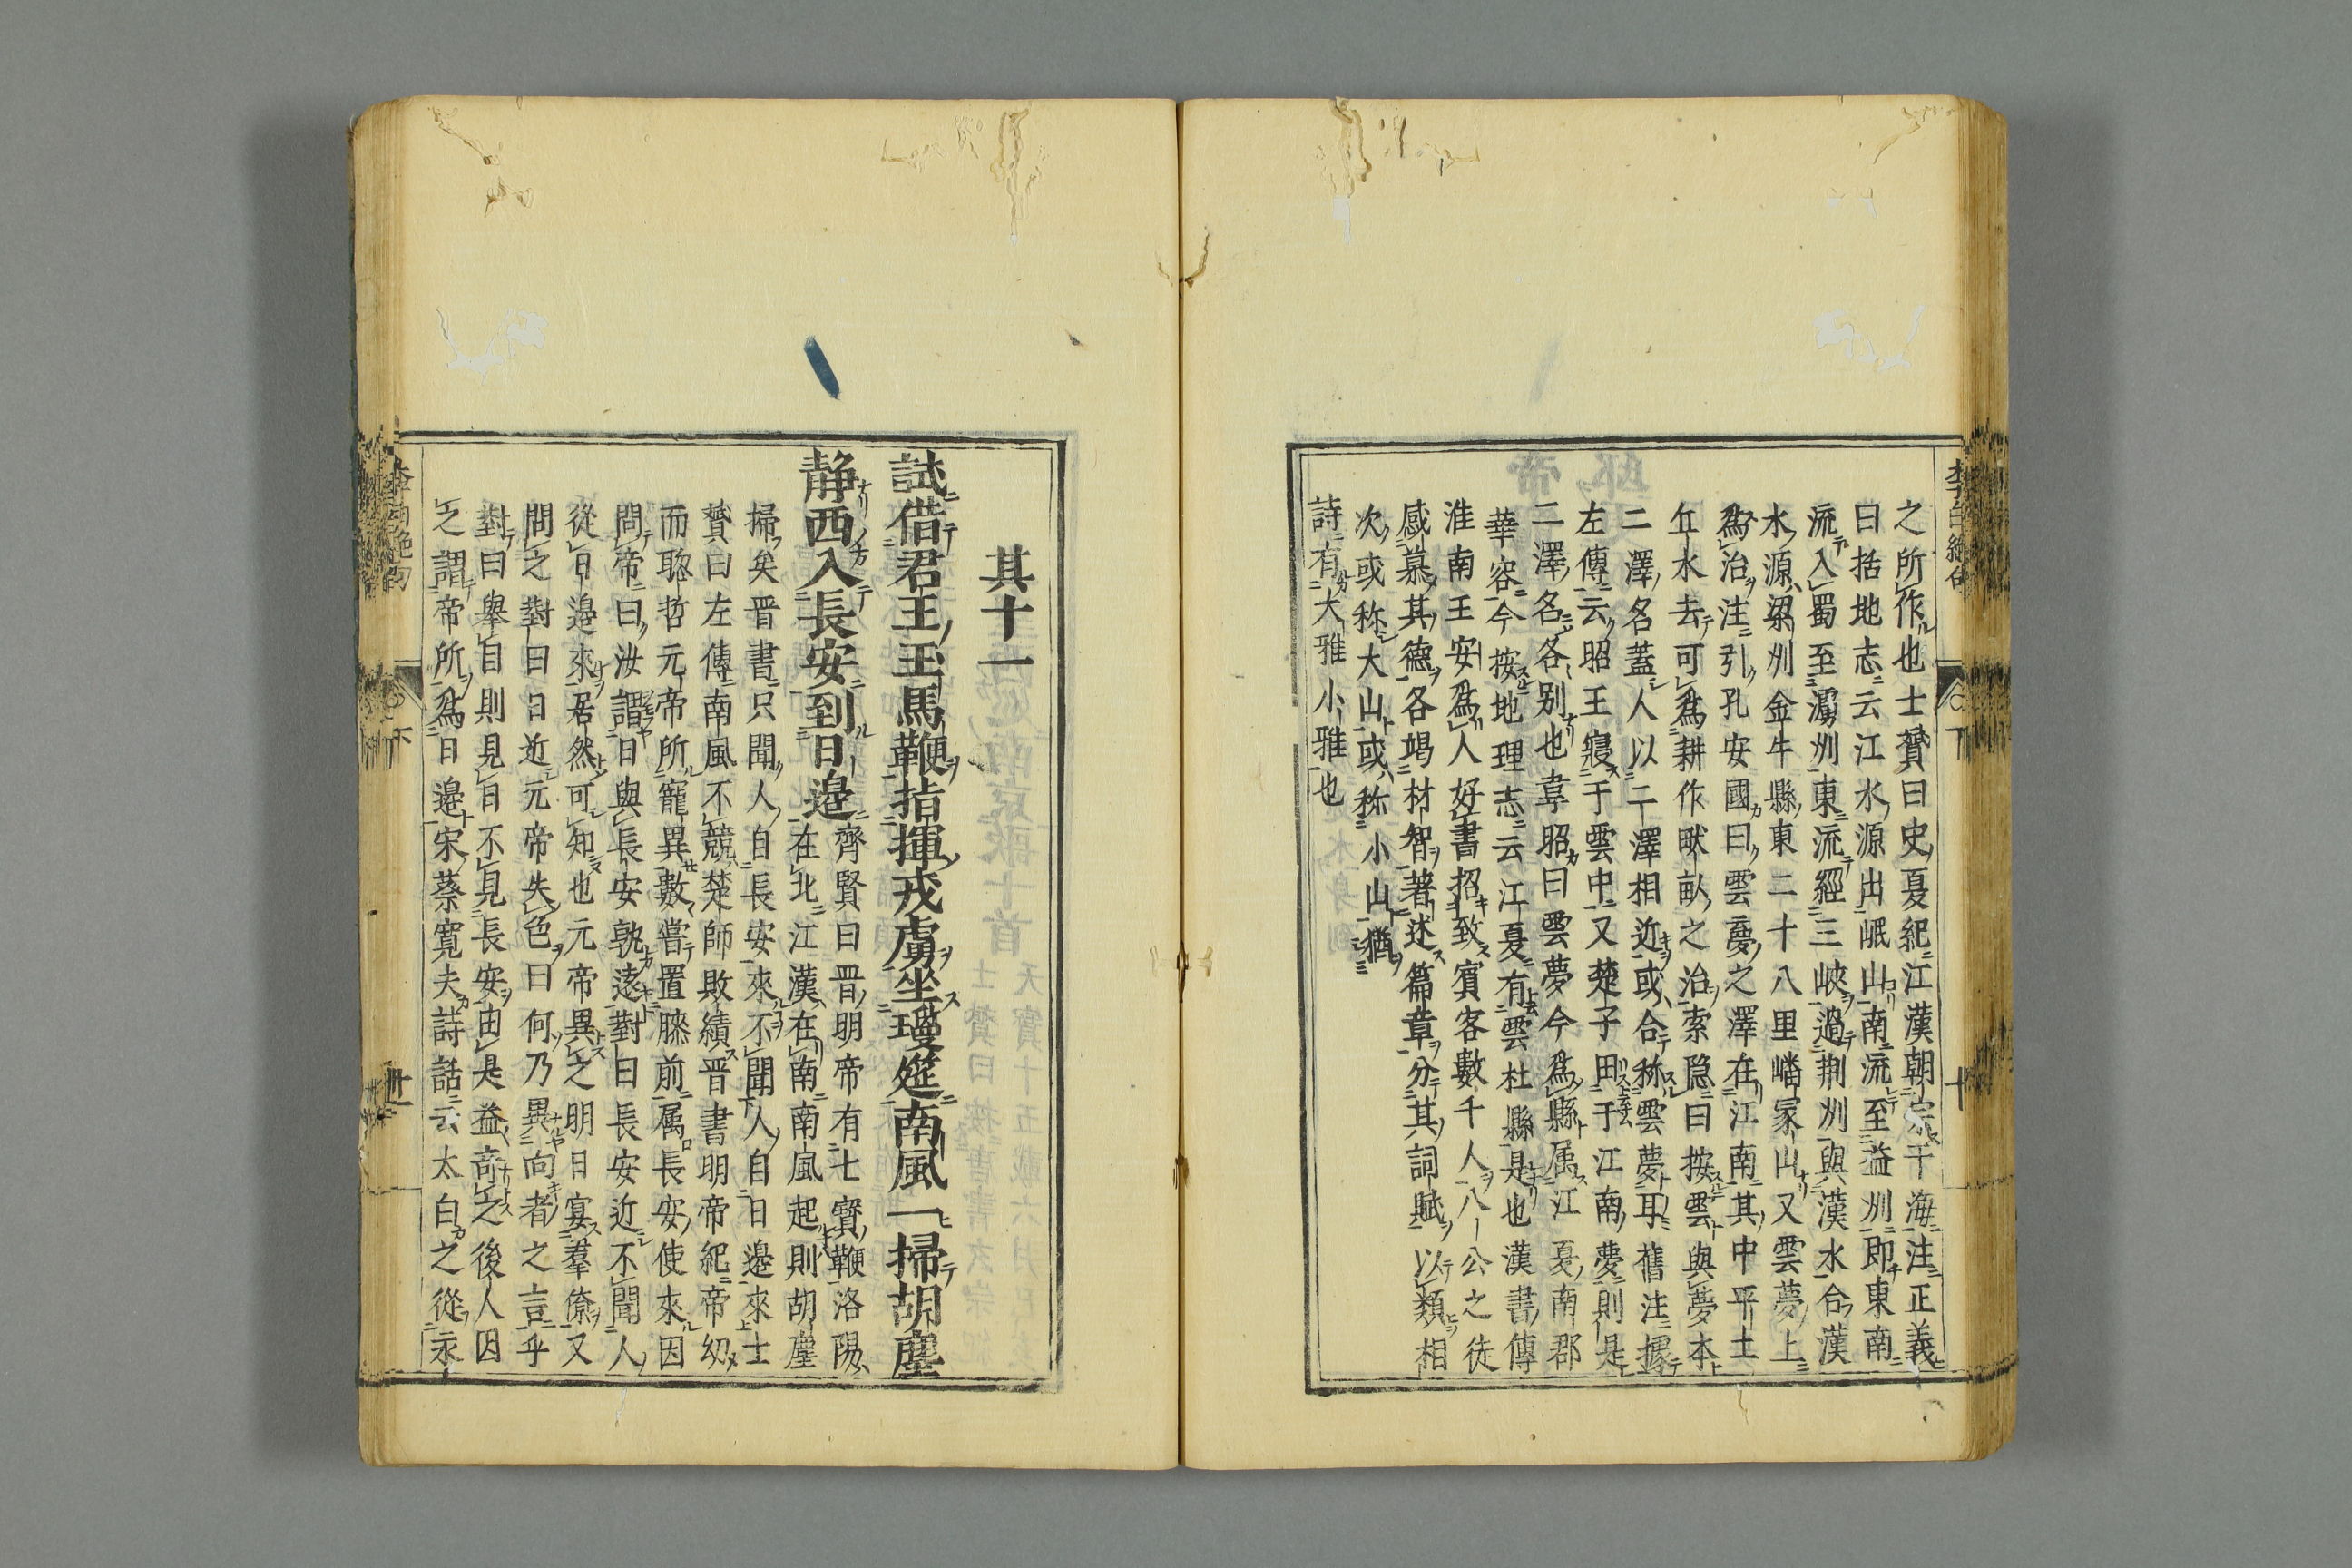 李白絶句
下
十
之所作也士贇曰史夏紀江漢朝宗于海注正義
曰括地志云江水源出岷山南流至益州即東南
流入蜀至瀘州東流經三峽過荆州與漢水合漢
水源梁州金牛縣東二十八里嶓冢山又雲夢上
爲治注引孔安國曰雲夢之澤在江南其中平土
丘水去可爲耕作畎畝之治索隠曰按雲與夢本
二澤名蓋人以二澤相近或合称雲夢耳舊注據
左傳云昭王寢于雲中又楚子田于江南夢則是
二澤名各别也韋昭曰雲夢今爲縣属江夏南郡
華容今按地理志云江夏有雲杜縣是也漢書傳
淮南王安爲人好書招致賓客數千人八公之徒
感慕其德各竭材智著述篇章分其詞賦以類相
次或称大山或称小山猶
詩有大雅小雅也
其十一
試借君王玉馬鞭指揮戎虜坐瓊筵南風一掃胡塵
静西入長安到日邉
齊賢曰晋明帝有七寳鞭洛陽
在北江漢在南南風起則胡塵
掃矣晋書只聞人自長安來不聞人自日邉來士
贇曰左傳南風不競楚師敗績晋書明帝紀帝幼
而聡哲元帝所寵異數嘗置膝前属長安使來因
問帝曰汝謂日與長安孰遠對曰長安近不聞人
從日邉來居然可知也元帝異之明日宴羣僚又
問之對曰日近元帝失色曰何乃異向者之言乎
對曰舉目則見日不見長安由是益奇之後人因
之謂帝所爲日邉宋蔡寛夫詩話云太白之從永
李白絶句
下
十一